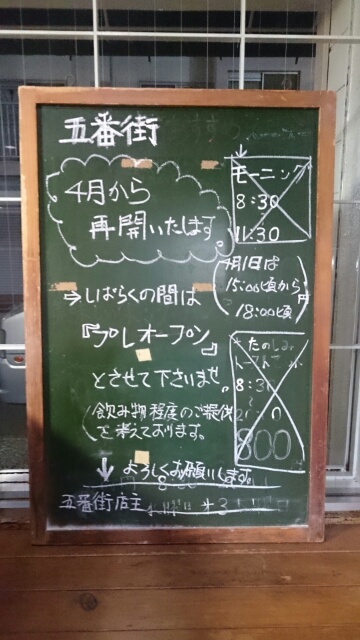 五番街
4月から
再開いたします。
⇒しばらくの間は
『プレオープン』
とさせて下さいませ。
(飲み物程度のご提供
を考えております。)
↓よろしくお願いします。
五番街店主
モーニング
8:30
11:30
(4月1日は
15:00頃から
18:00頃)
たのしみ
8:30
800